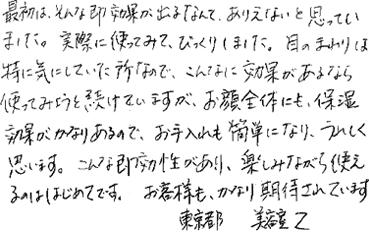 最初は、そんな即効果が出るなんて、ありえないと思ってい
ました。実際に使ってみて、びっくりしました。目のまわりは
特に気にしていた所なので、こんなに効果があるなら
使ってみようと続けていますが、お顔全体にも、保湿
効果がかなりあるので、お手入れも簡単になり、うれしく
思います。こんな即効性があり、楽しみながら使え
るのははじめてです。お客様も、かなり期待されています
東京都 美容室Z